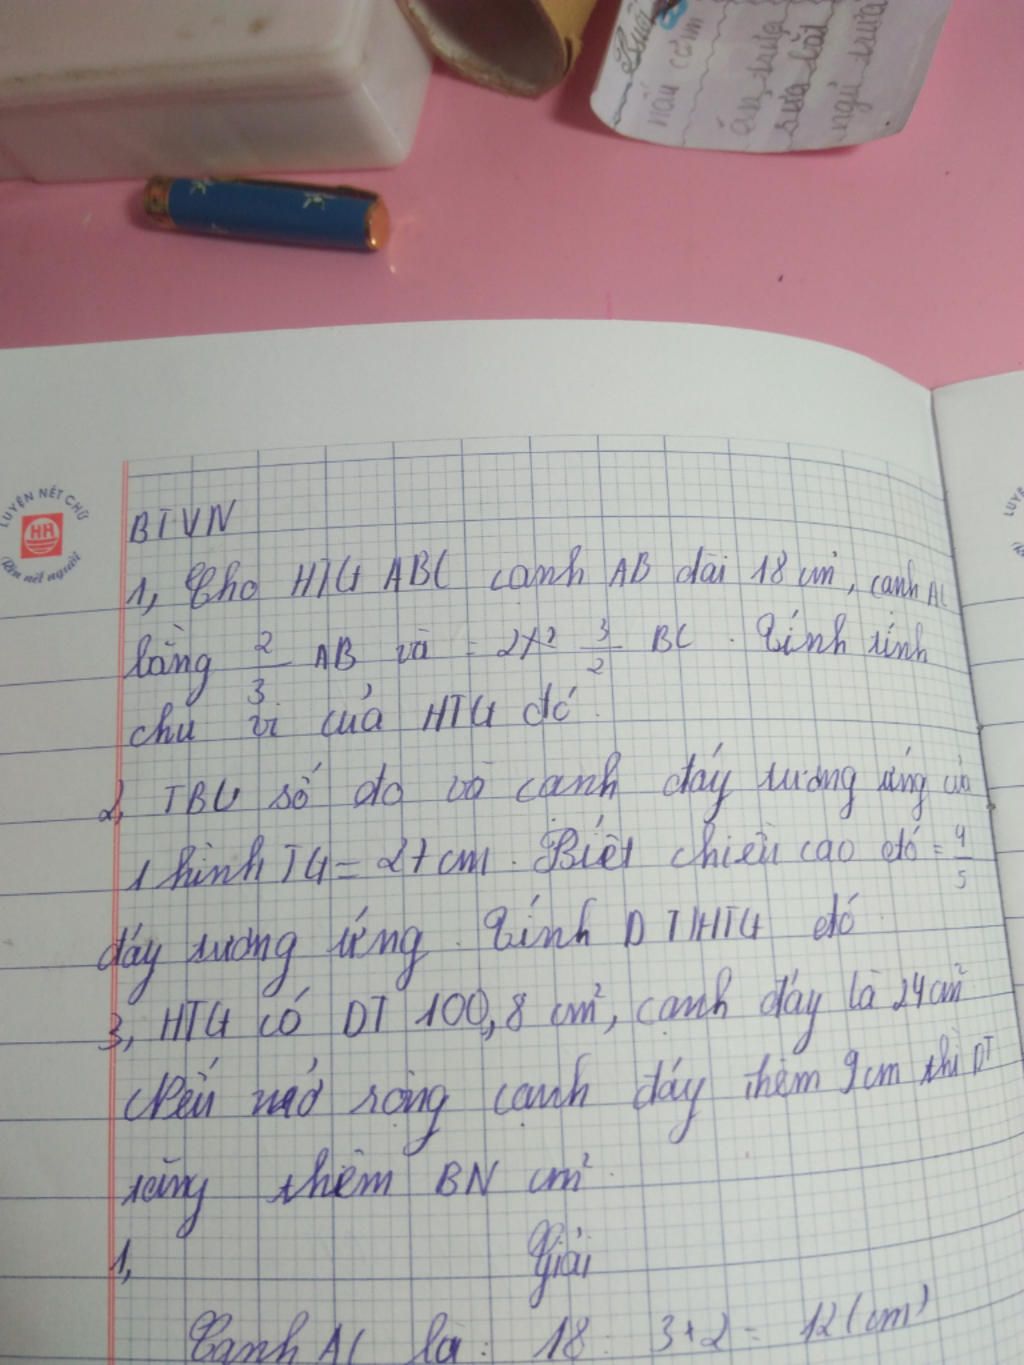 nấu cơm
ăn trưa
rửa bát
ngủ trưa
LUYỆN NÉT CHỮ
HH
Rèn nết người
BTVN
1, Cho HTG ABC cạnh AB dài 18 cm, cạnh AC
bằng 2/3 AB và = 3/2 BC. Tính
chu vi của HTG đó.
2, TBC số đo và cạnh đáy tương ứng của
1 hình TG = 27 cm. Biết chiều cao đó = 4/5
đáy tương ứng. Tính DTHTG đó
3, HTG có DT 100,8 cm², cạnh đáy là 24cm²
Nếu mở rộng cạnh đáy thêm 9cm thì DT
tăng thêm BN cm².
Giải
1,
Cạnh AC là: 18 : 3 x 2 = 12 (cm)
LUYỆ